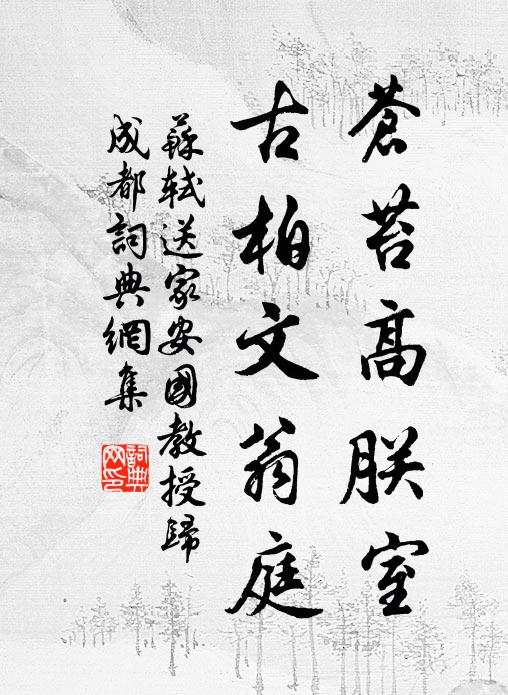 蒼苔高朕室
古柏文翁庭
蘇軾送家安國教授歸
成都詞典網集
詞典网印